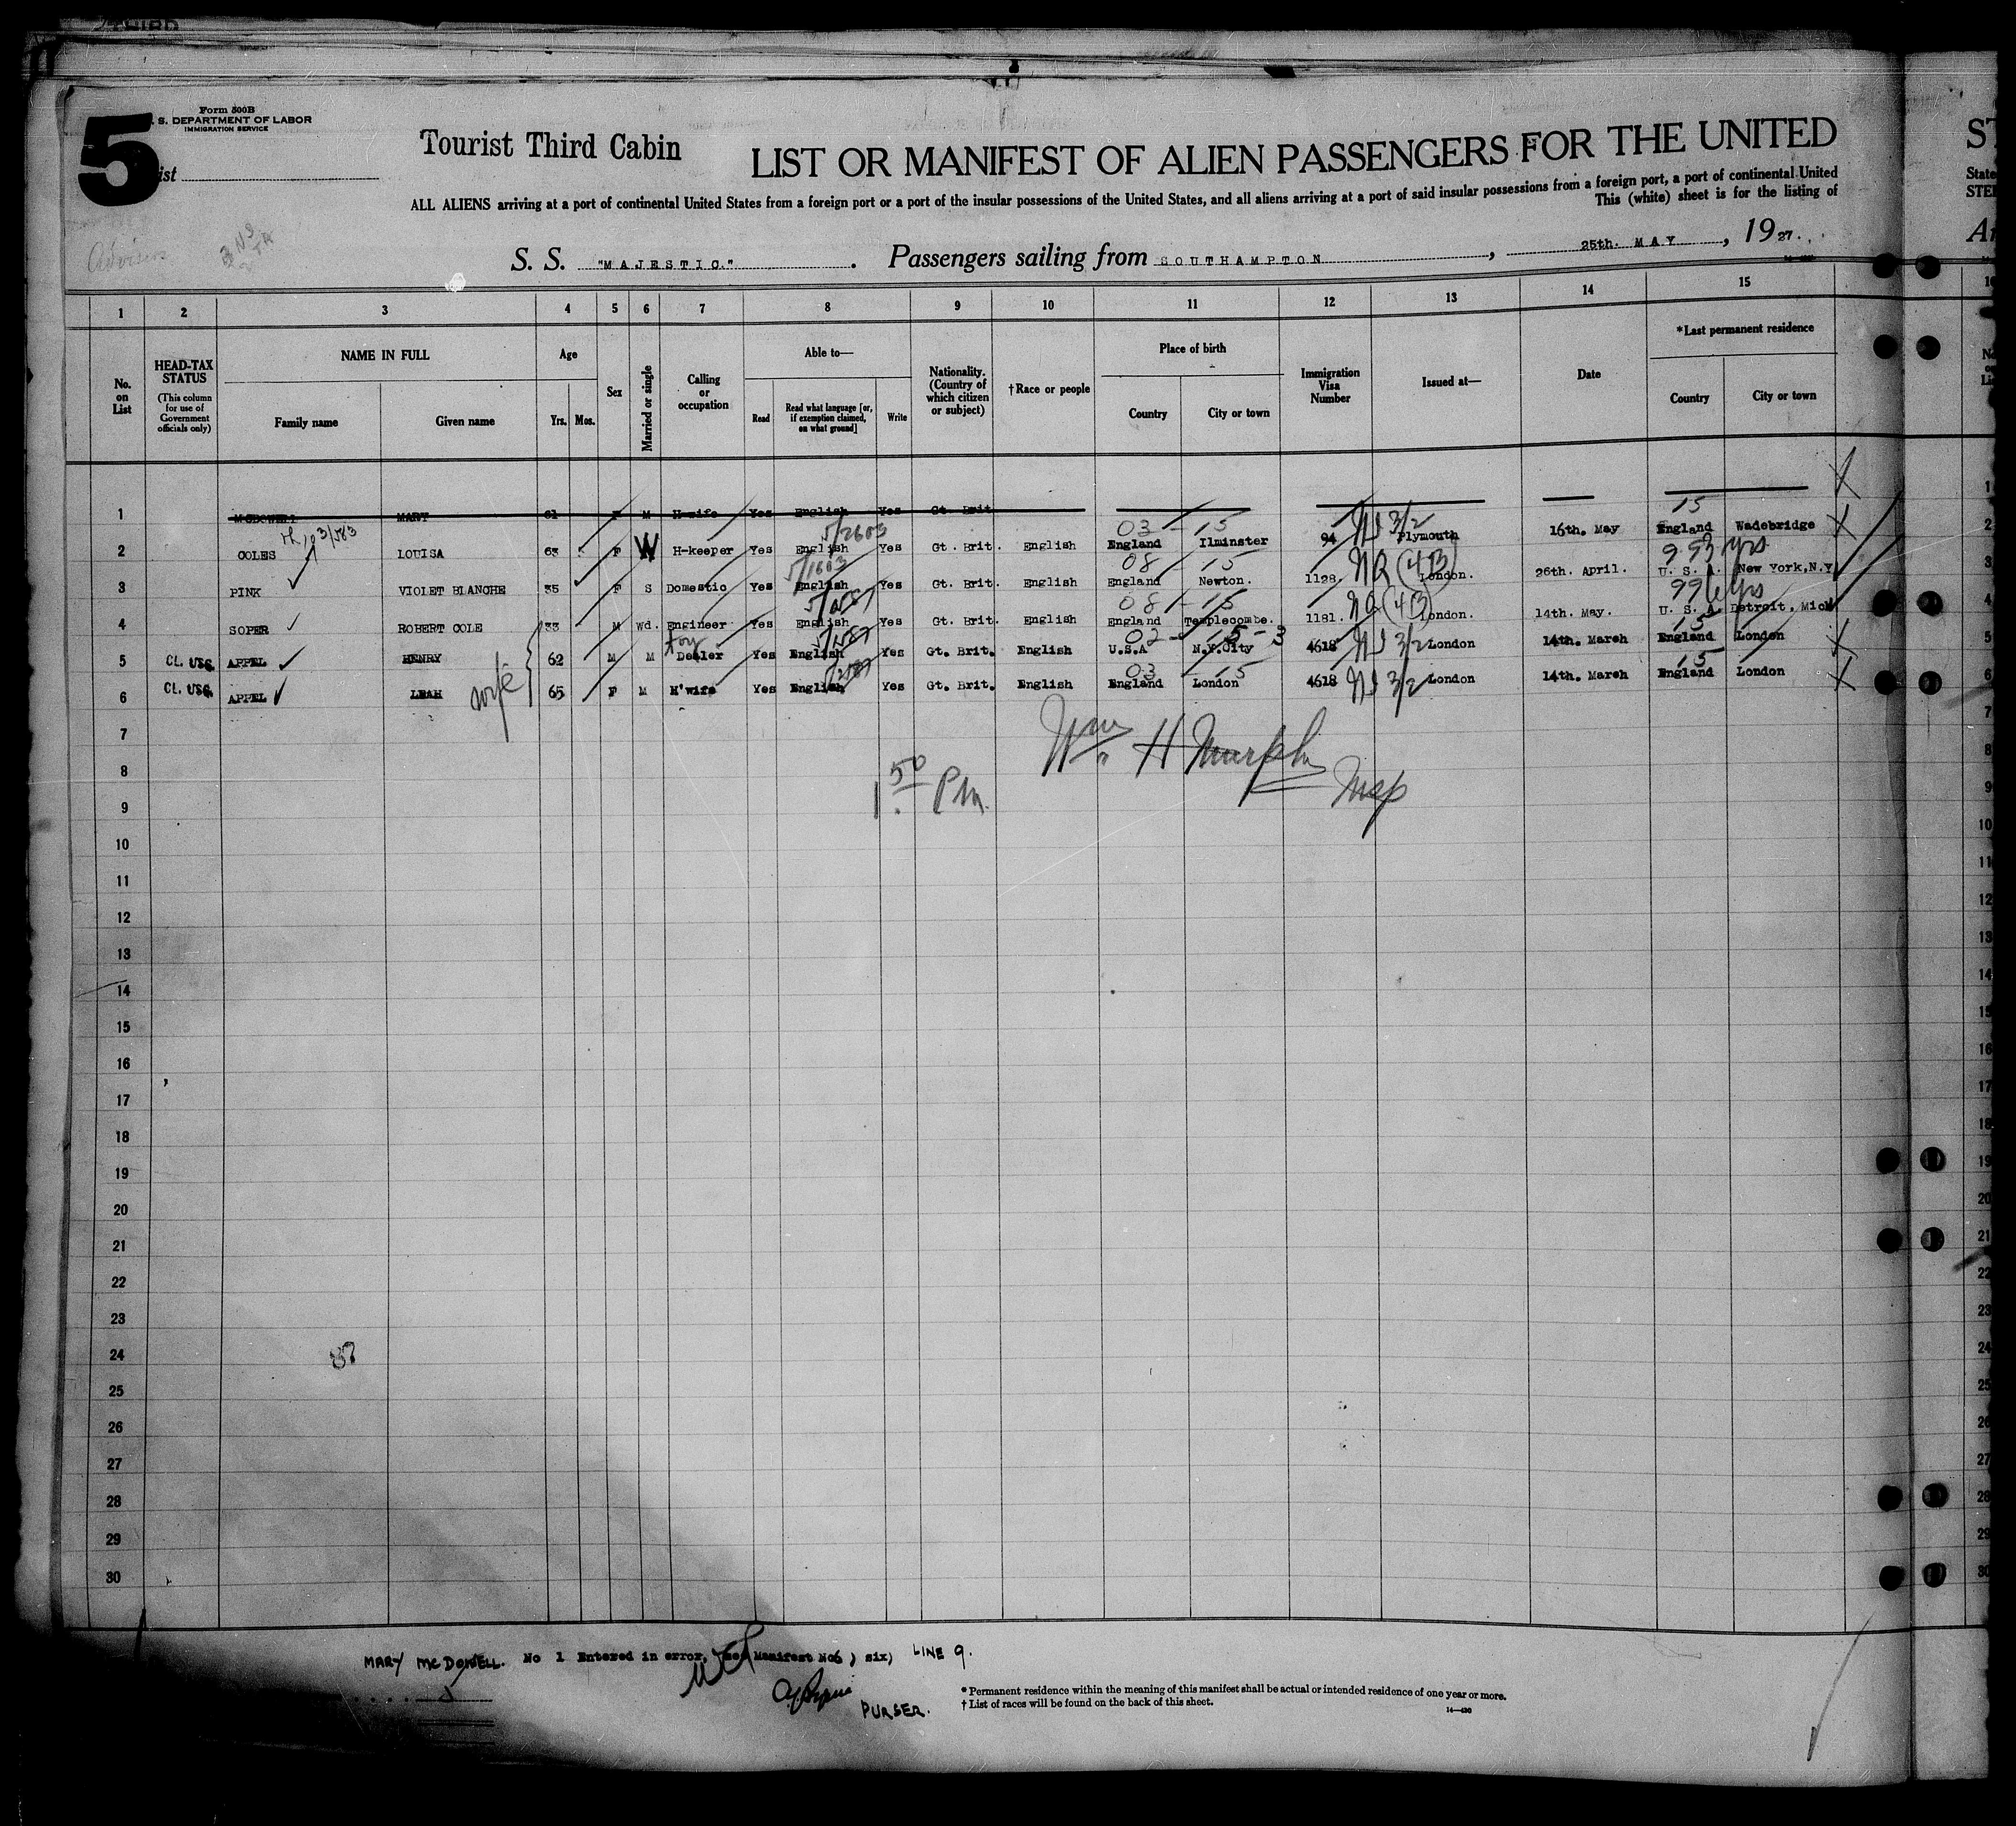 THIRD
5
Form 500B
U. S. DEPARTMENT OF LABOR
IMMIGRATION SERVICE
List
Tourist Third Cabin
LIST OR MANIFEST OF ALIEN PASSENGERS FOR THE UNITED
ALL ALIENS arriving at a port of continental United States from a foreign port or a port of the insular possessions of the United States, and all aliens arriving at a port of said insular possessions from a foreign port, a port of continental United
This (white) sheet is for the listing of
S. S. "MAJESTIC." . Passengers sailing from SOUTHAMPTON , 25th. MAY , 1927.
1 2 3 4 5 6 7 8 9 10 11 12 13 14 15
No. on List
HEAD-TAX STATUS
(This column for use of Government officials only)
NAME IN FULL
Family name Given name
Age
Yrs. Mos.
Sex
Married or single
Calling or occupation
Able to—
Read
Read what language [or, if exemption claimed, on what ground]
Write
Nationality. (Country of which citizen or subject)
†Race or people
Place of birth
Country City or town
Immigration Visa Number
Issued at—
Date
*Last permanent residence
Country City or town
1 McDOWELL MARY 61 F M H-wife Yes English Yes Gt. Brit
5/2603 03 - 15 NI 3/2 15
2 COLES LOUISA 63 F W H-keeper Yes English Yes Gt. Brit. English England Ilminster 94 Plymouth 16th. May England Wadebridge
5/1603 08 - 15 NQ (4B) yrs
3 PINK VIOLET BLANCHE 35 F S Domestic Yes English Yes Gt. Brit. English England Newton. 1128. London. 26th. April. U. S. A. New York, N.Y
08 - 15 NQ (4B) yrs
4 SOPER ROBERT COLE 33 M Wd. Engineer Yes English Yes Gt. Brit. English England Templecombe. 1181. London. 14th. May. U. S. A. Detroit, Mich
02 - 15 - 3 NI 3/2 15
5 Cl. USC. APPEL HENRY 62 M M Dealer Yes English Yes Gt. Brit. English U.S.A N.Y.City 4618 London 14th. March England London
03 15 NI 3/2 15
6 Cl. USC. APPEL LEAH wife 65 F M H'wife Yes English Yes Gt. Brit. English England London 4618 London 14th. March England London
7
Wm H Murphy
8
1 50 P.M. Insp
9
10
11
12
13
14
15
16
17
18
19
20
21
22
23
24
25
26
27
28
29
30
MARY McDOWELL. No 1 Entered in error, (see Manifest No6) six) LINE 9.
PURSER.
* Permanent residence within the meaning of this manifest shall be actual or intended residence of one year or more.
† List of races will be found on the back of this sheet.
14—430